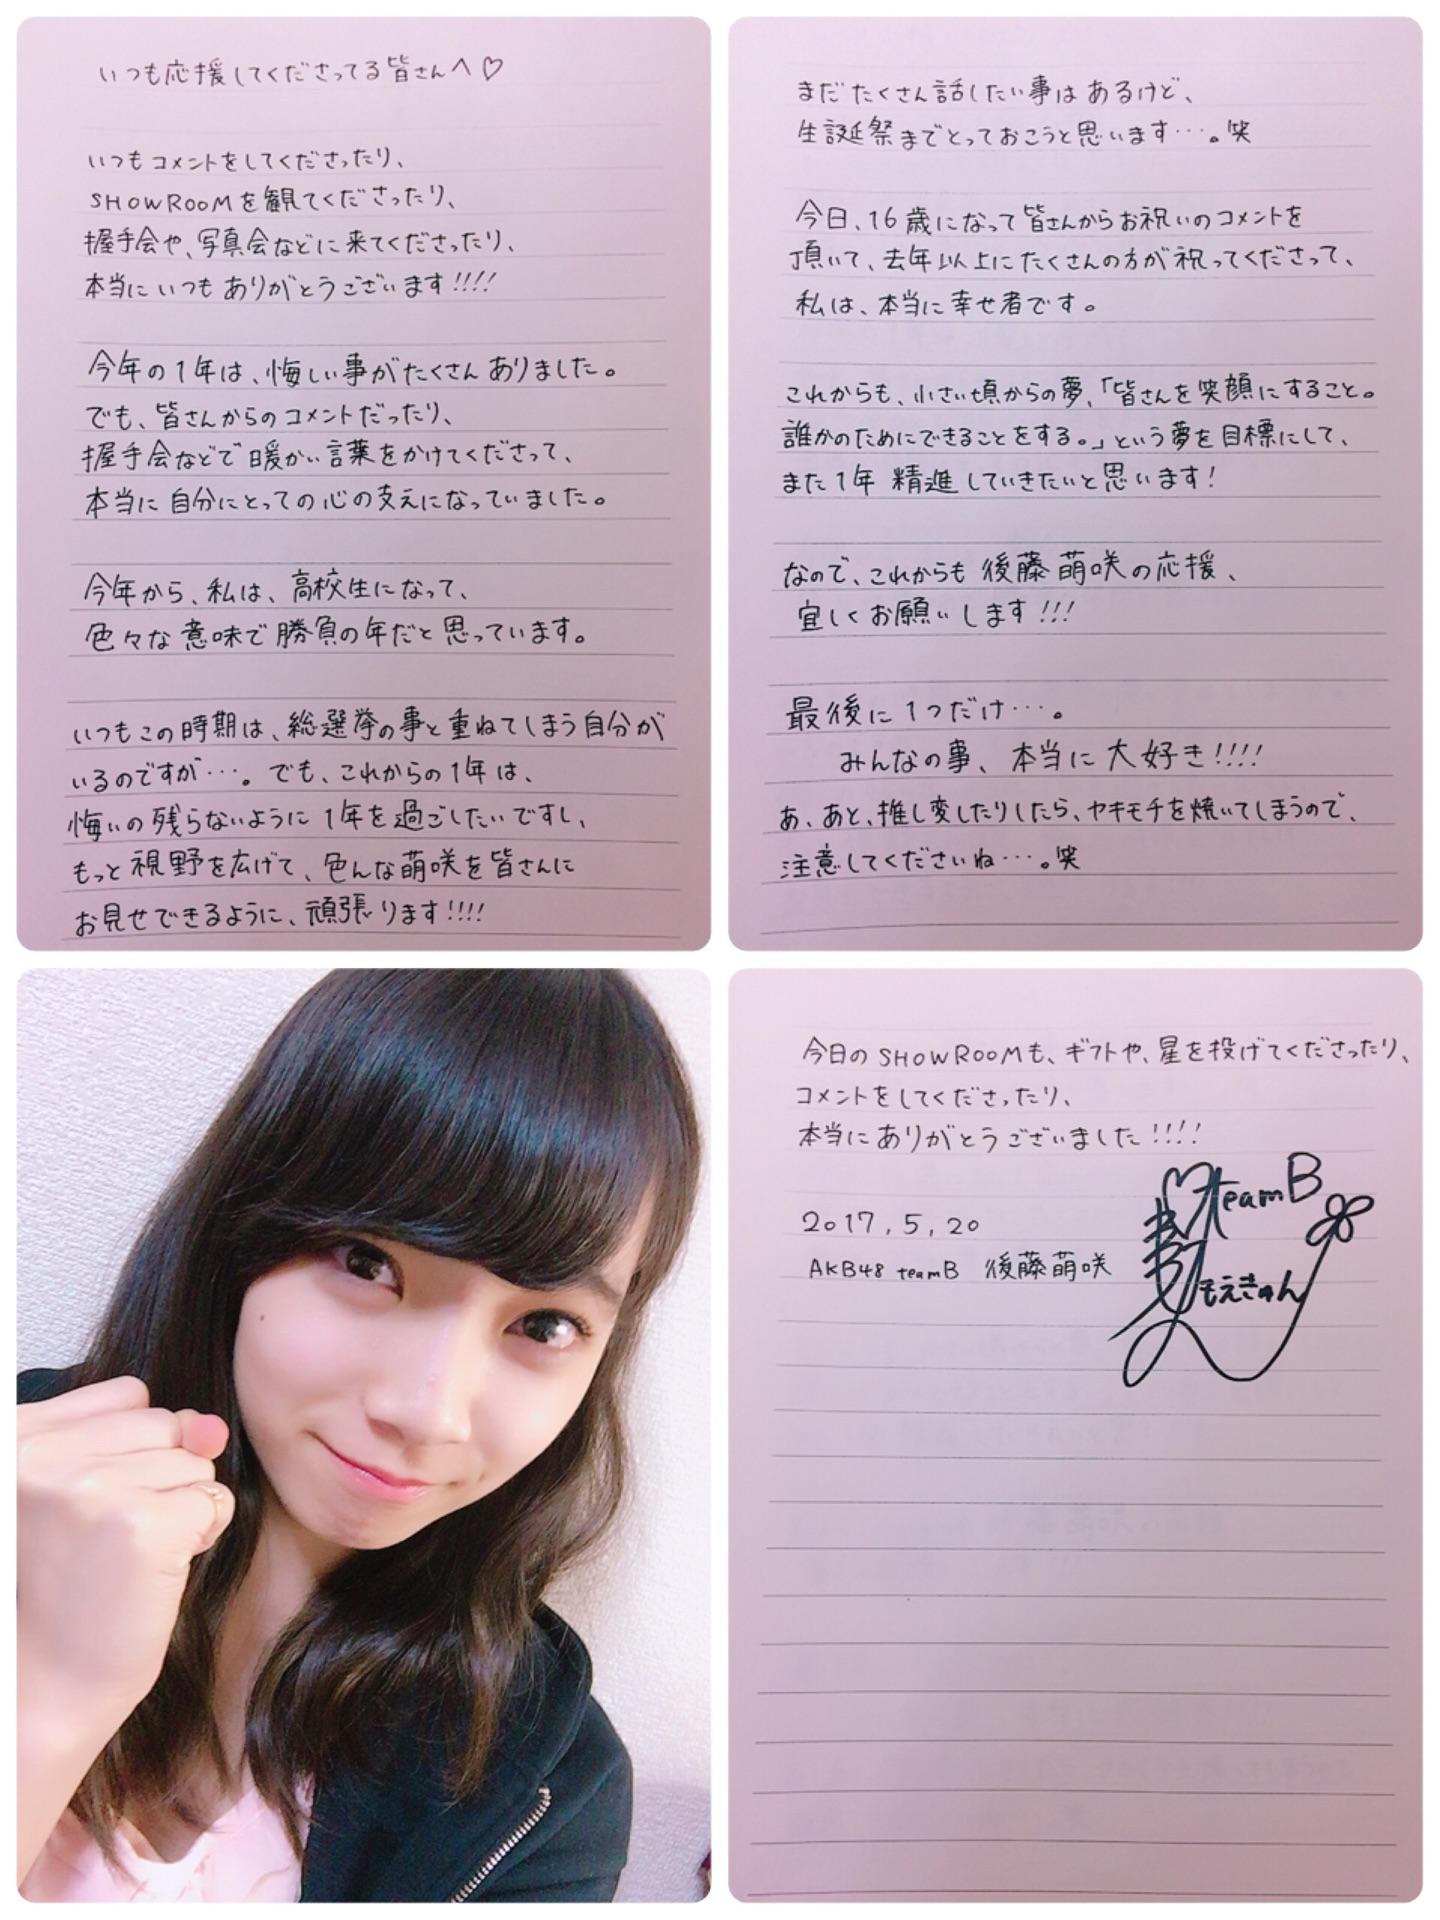 いつも応援してくださってる皆さんへ♡
いつもコメントをしてくださったり、
SHOWROOMを観てくださったり、
握手会や、写真会などに来てくださったり、
本当にいつもありがとうございます!!!!
今年の1年は、悔しい事がたくさんありました。
でも、皆さんからのコメントだったり、
握手会などで暖かい言葉をかけてくださって、
本当に自分にとっての心の支えになっていました。
今年から、私は、高校生になって、
色々な意味で勝負の年だと思っています。
いつもこの時期は、総選挙の事と重ねてしまう自分が
いるのですが…。でも、これからの1年は、
悔いの残らないように1年を過ごしたいですし、
もっと視野を広げて、色んな萌咲を皆さんに
お見せできるように、頑張ります!!!!
まだたくさん話したい事はあるけど、
生誕祭までとっておこうと思います…。笑
今日、16歳になって皆さんからお祝いのコメントを
頂いて、去年以上にたくさんの方が祝ってくださって、
私は、本当に幸せ者です。
これからも、小さい頃からの夢、「皆さんを笑顔にすること。
誰かのためにできることをする。」という夢を目標にして、
また1年精進していきたいと思います!
なので、これからも後藤萌咲の応援、
宜しくお願いします!!!
最後に1つだけ…。
みんなの事、本当に大好き!!!!
あ、あと、推し変したりしたら、ヤキモチを焼いてしまうので、
注意してくださいね…。笑
今日のSHOWROOMも、ギフトや、星を投げてくださったり、
コメントをしてくださったり、
本当にありがとうございました!!!!
2017,5,20
AKB48 teamB 後藤萌咲
teamB
もえきゅん